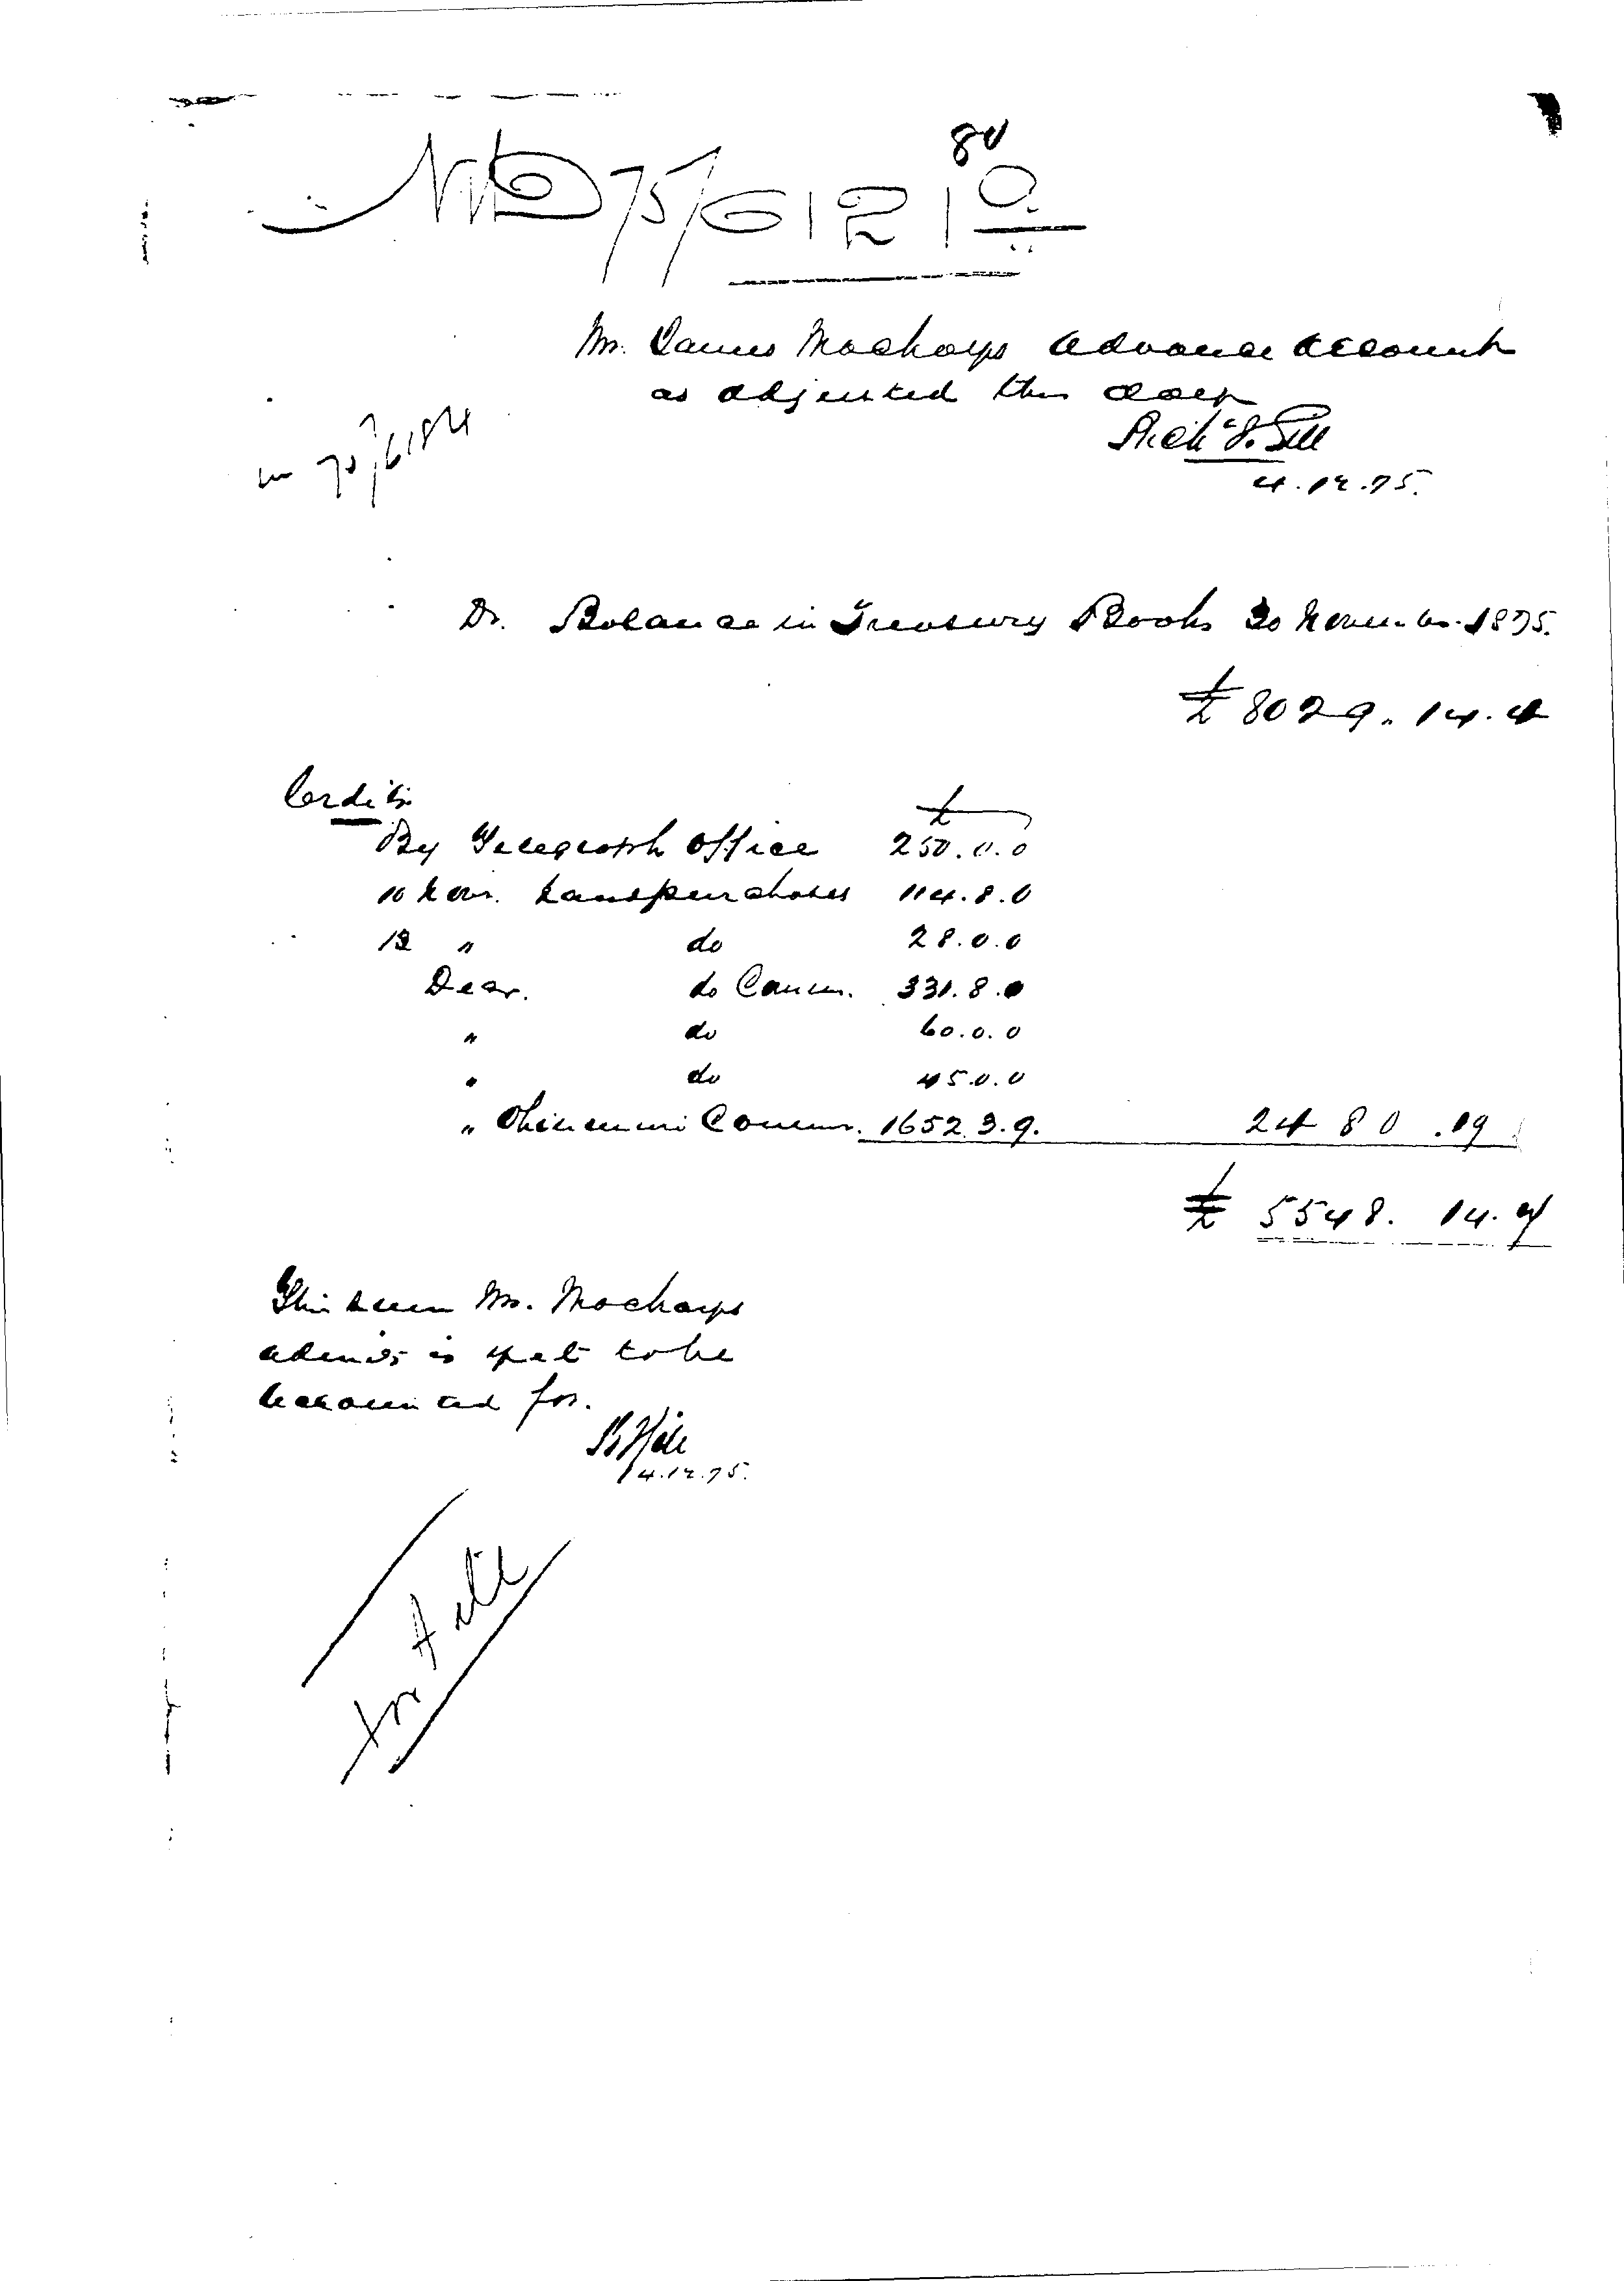 80
ND 75/6121
Mr. James Mackays advance account
as adjusted this day
4.12.75.
Dr. Balance in Treasury Books 30 November 1875.
£ 8029. 14. 4
Credits
£
By Telegraph Office 250.0.0
10 Nov. Landpurchases 114.8.0
12 " do 28.0.0
Decr. do Comm. 331.8.0
" do 60.0.0
" do 45.0.0
" Ohinemuri Comm. 1652.3.9. 2480.19
£ 5548. 14. 4
This sum Mr. Mackays
admits is yet to be
accounted for.
4.12.75.
for file